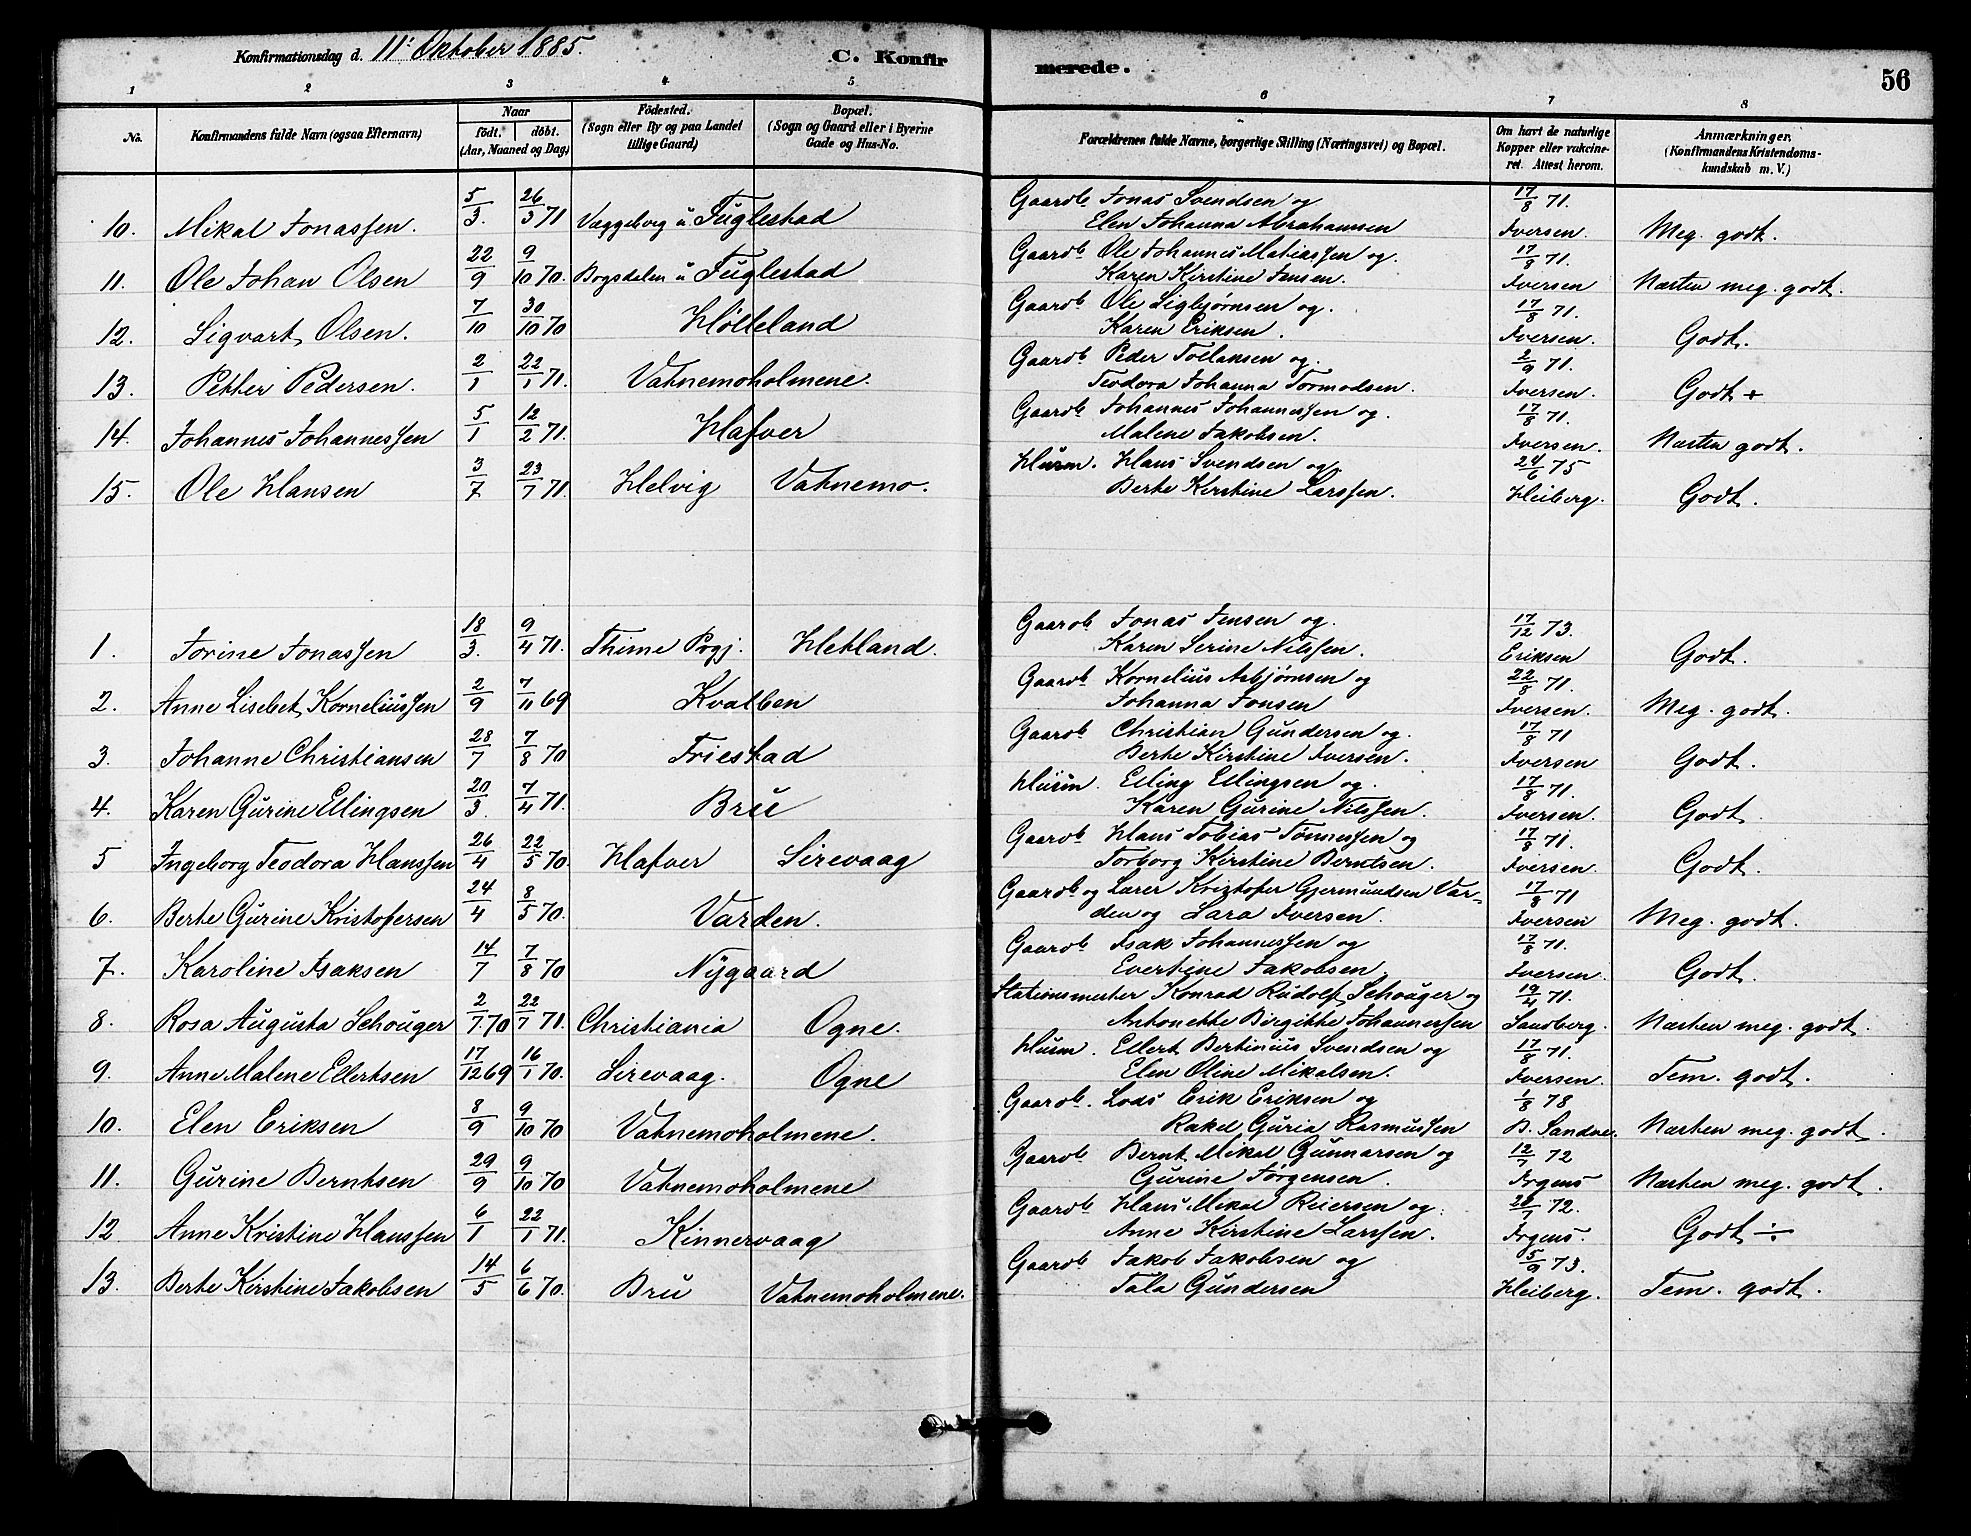 Konfirmationsdag d. 11' Oktober 1885.
C. Konfir
merede.
56
1 2 3 4 5 6 7 8
No. Konfirmandens fulde Navn (ogsaa Efternavn) Naar födt. döbt. (Aar, Maaned og Dag) Födested. (Sogn eller By og paa Landet tillige Gaard) Bopæl. (Sogn og Gaard eller i Byerne Gade og Hus-No. Forældrenes fulde Navne, borgerlige Stilling (Næringsvei) og Bopæl. Om havt de naturlige Kopper eller vakcineret. Attest herom. Anmærkninger. (Konfirmandens Kristendomskundskab m. V.)
10. Mikal Jonassen. 5/3. 26/3 71 u Fuglestad Gaardb Jonas Svendsen og 17/8 71.
Elen Johanna Abrahamsen Iversen. Meg. godt.
11. Ole Johan Olsen 22/9 9/10 70. Bogsdalen u Fuglestad Gaardb Ole Johannes Matiassen og. 17/8 71.
Karen Kirstine Jensen. Iversen Næsten meg. godt.
12. Sigvart Olsen. 7/10 30/10 70 Hölleland Gaardb Ole Sigbjørnsen og. 17/8 71.
Karen Eriksen. Iversen. Godt.
13. Petter Pedersen. 2/1 22/1 71. Vatnemoholmene. Gaardb Peder Tollansen og. 2/9 71.
Teodora Johanna Tormodsen. Iversen. Godt +
14. Johannes Johannessen 5/1 12/2 71. Hafver Gaardb Johannes Johannessen og. 17/8 71.
Malene Jakobsen. Iversen. Næsten godt.
15. Ole Hansen 3/7 23/7 71. Helvig Vatnemo. Husm. Hans Svendsen og. 24/6 75
Berte Kirstine Larssen. Heiberg. Godt.
1. Jorine Jonassen 18/3. 9/4 71. Thime Prgj. Hetland. Gaardb Jonas Jensen og. 17/12 73.
Karen Serine Nilssen. Eriksen Godt.
2. Anne Lisebet Korneliussen 2/9 7/11 69 Kvalben Gaardb Kornelius Asbjørnsen og 22/8 71.
Johanna Jonsen Iversen. Meg. godt.
3. Johanne Christiansen 28/7 7/8 70 Friestad Gaardb Christian Gundersen og. 17/8 71
Berte Kirstine Iversen. Iversen Godt.
4. Karen Gurine Ellingsen 20/3. 7/4 71. Bru Husm. Elling Ellingsen og. 17/8 71.
Karen Gurine Nilssen. Iversen. Godt.
5 Ingeborg Teodora Hanssen 26/4 22/5 70. Hafver Sirevaag Gaardb Hans Tobias Tønnessen og 17/8 71.
Torborg Kirstine Berntsen. Iversen. Godt.
6. Berte Gurine Kristofersen 24/4 8/5 70. Varden. Gaardb og Lærer Kristofer Gjermundsen Var- 17/8 71
den og Lara Iversen. Iversen Meg. godt.
7. Karoline Isaksen 14/7 7/8 70 Nygaard Gaardb Isak Johannessen og 17/8 71.
Evertine Jakobsen. Iversen. Godt.
8. Rosa Augusta Schouger 2/7.70 22/7 71. Christiania Ogne. Stationsmester Konrad Rudolf Schouger og 19/4 71.
Antonette Birgitte Johannessen Sandberg. Næsten meg. godt.
9. Anne Malene Ellertsen 17/12 69 16/1 70. Sirevaag. Ogne Husm. Ellert Bertinius Svendsen og 17/8 71.
Elen Oline Mikalsen. Iversen. Tem. godt.
10. Elen Eriksen 8/9 9/10 70 Vatnemoholmene. Gaardb. Lods Erik Eriksen og 1/8 78
Rakel Guria Rasmussen B. Sandve. Næsten meg. godt.
11. Gurine Berntsen 29/9 9/10 70 Vatnemoholmene Gaardb Bernt Mikal Gunnarsen og 12/7 72
Gurine Jørgensen. Irgens Næsten meg. godt.
12 Anne Kristine Hanssen 6/1 22/1 71. Kinnervaag Gaardb Hans Mikal Reiersen og. 72.
Anne Kirstine Larssen. Irgens. Godt ÷
13. Berte Kirstine Jakobsen 14/5 6/6 70. Bru Vatnemoholmene. Gaardb Jakob Jakobsen og 5/9 73.
Tala Gundersen Heiberg. Tem. godt.